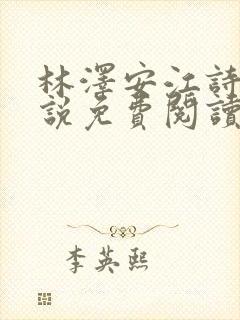 林澤安江詩
說免費閱讀
李英熙